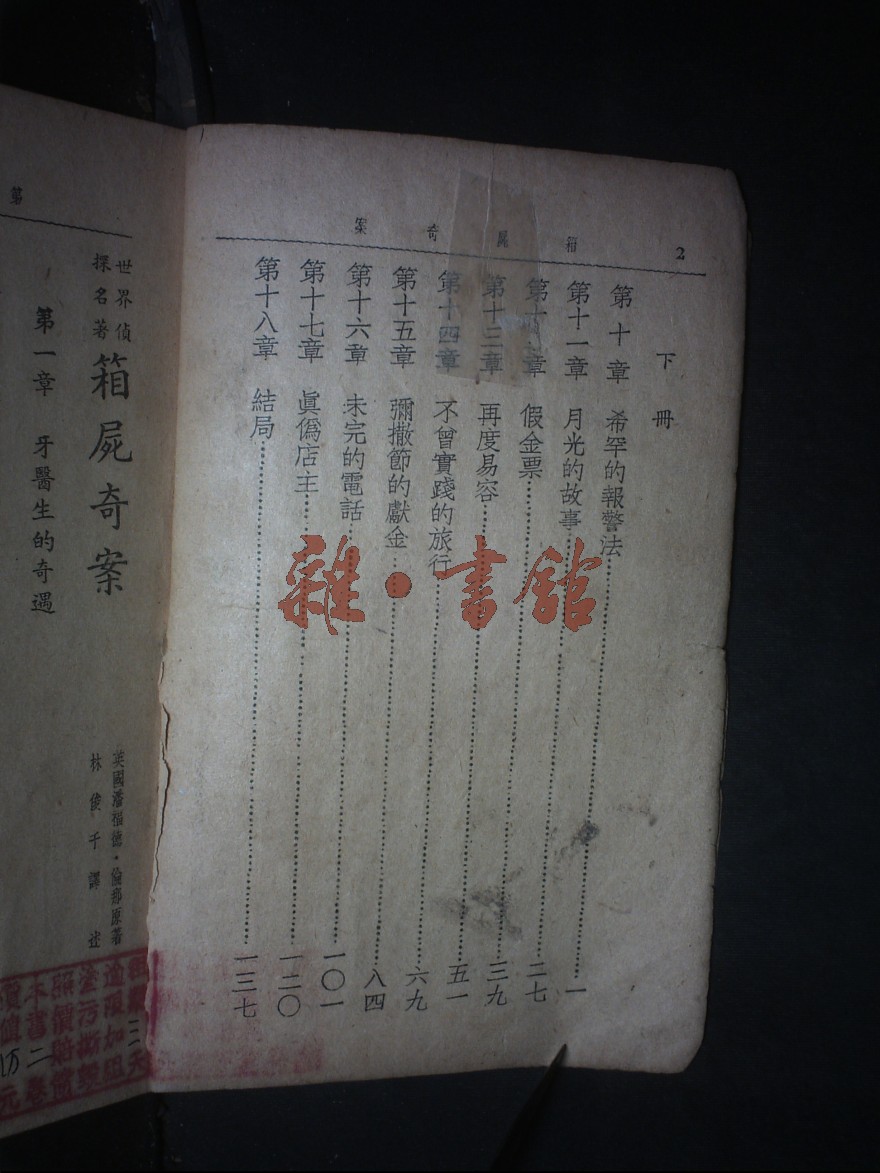 2
箱屍奇案
下冊
第十章 希罕的報警法……一
第十一章 月光的故事……二七
第十二章 假金票……三九
第十三章 再度易容……五一
第十四章 不曾實踐的旅行……六九
第十五章 彌撒節的獻金……八四
第十六章 未完的電話……一〇一
第十七章 眞僞店主……一二〇
第十八章 結局……一三七
雜·書館
第
世界偵探名著
箱屍奇案
英國潘福德·倫郝原著
林俊千譯述
第一章 牙醫生的奇遇